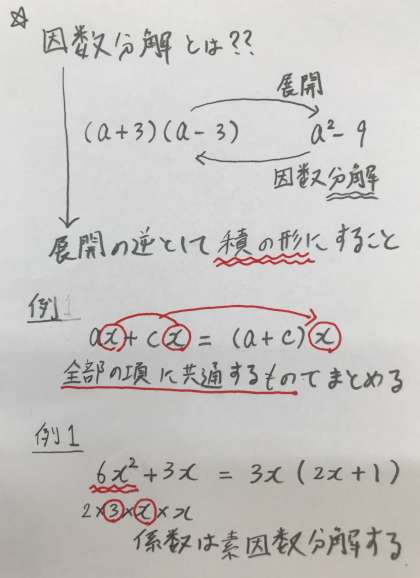 ☆
因数分解とは??
展開
(a+3)(a-3) a²-9
因数分解
展開の逆として積の形にすること
例
ax+cx=(a+c)x
全部の項に共通するものでまとめる
例1
6x²+3x = 3x(2x+1)
2×3×x×x
係数は素因数分解する